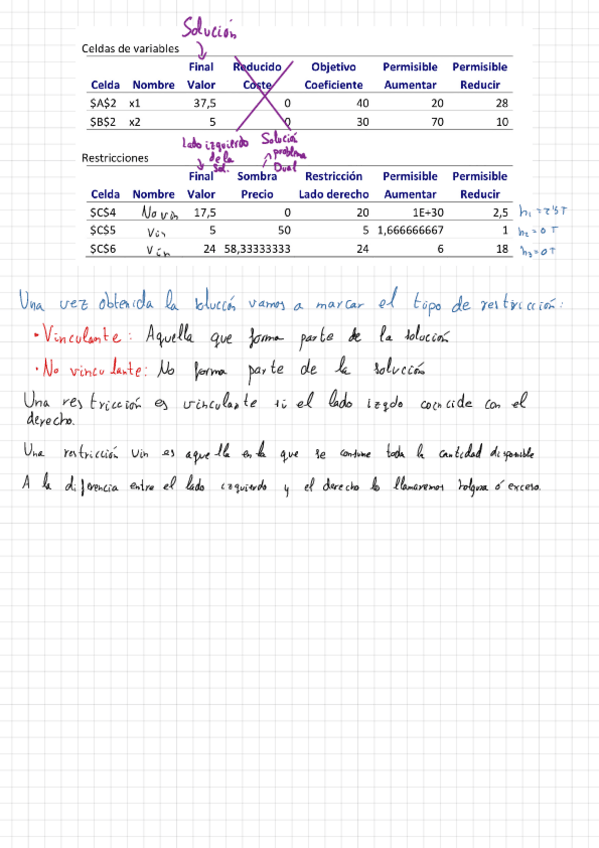 Solución
Celdas de variables
Final Reducido Objetivo Permisible Permisible
Celda Nombre Valor Coste Coeficiente Aumentar Reducir
$A$2 x1 37,5 0 40 20 28
$B$2 x2 5 0 30 70 10
Lado izquierdo de la sol.
Solución problema Dual
Restricciones
Final Sombra Restricción Permisible Permisible
Celda Nombre Valor Precio Lado derecho Aumentar Reducir
$C$4 No vin 17,5 0 20 1E+30 2,5 h₁ = 2'5 T
$C$5 Vin 5 50 5 1,666666667 1 h₂ = 0 T
$C$6 Vin 24 58,33333333 24 6 18 h₃ = 0 T
Una vez obtenida la solución vamos a marcar el tipo de restricción:
• Vinculante: Aquella que forma parte de la solución
• No vinculante: No forma parte de la solución
Una restricción es vinculante si el lado izqdo coincide con el
derecho.
Una restricción vin es aquella en la que se consume toda la cantidad disponible
A la diferencia entre el lado izquierdo y el derecho lo llamaremos holgura ó exceso.